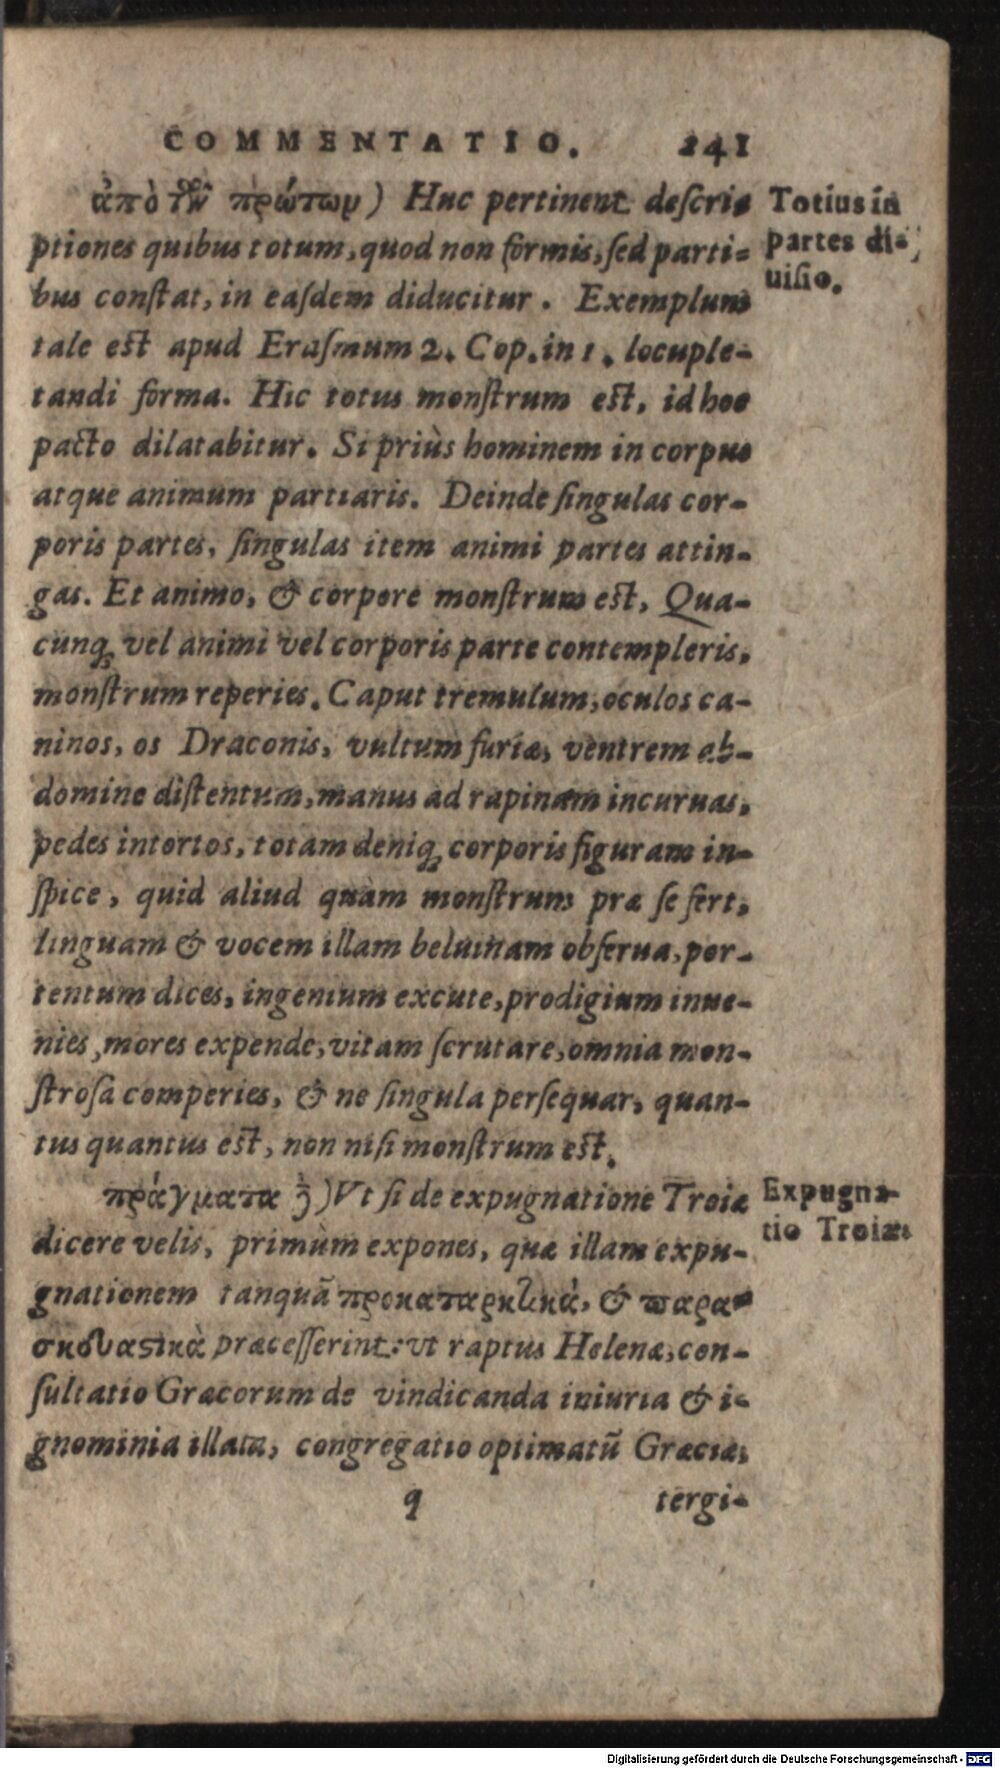 COMMENTATIO. 241
ἀπὸ τῶν πρώτων) Huc pertinent deſcri-
ptiones quibus totum, quod non formis, ſed parti-
bus conſtat, in eaſdem diducitur. Exemplum
tale eſt apud Eraſmum 2. Cop. in 1. locuple-
tandi forma. Hic totus monſtrum eſt, id hoc
pacto dilatabitur. Si priùs hominem in corpus
atque animum partiaris. Deinde ſingulas cor-
poris partes, ſingulas item animi partes attin-
gas. Et animo, & corpore monſtrum eſt, Qua-
cunq; vel animi vel corporis parte contempleris,
monſtrum reperies. Caput tremulum, oculos ca-
ninos, os Draconis, vultum furiæ, ventrem ab-
domine diſtentum, manus ad rapinam incuruas,
pedes intortos, totam deniq; corporis figuram in-
ſpice, quid aliud quàm monſtrum præ ſe fert,
linguam & vocem illam beluinam obſerua, por-
tentum dices, ingenium excute, prodigium inue-
nies, mores expende, vitam ſcrutare, omnia mon-
ſtroſa comperies, & ne ſingula perſequar, quan-
tus quantus eſt, non niſi monſtrum eſt.
πράγματα ἢ) Vt ſi de expugnatione Troiæ
dicere velis, primùm expones, quæ illam expu-
gnationem tanquã προκαταρκτικὰ, & παρα-
σκευαστικὰ præceſſerint: vt raptus Helenæ, con-
ſultatio Græcorum de vindicanda iniuria & i-
gnominia illata, congregatio optimatũ Græciæ,
q tergi-
Totius in
partes di-
uiſio.
Expugna-
tio Troiæ.
Digitalisierung gefördert durch die Deutsche Forschungsgemeinschaft - DFG